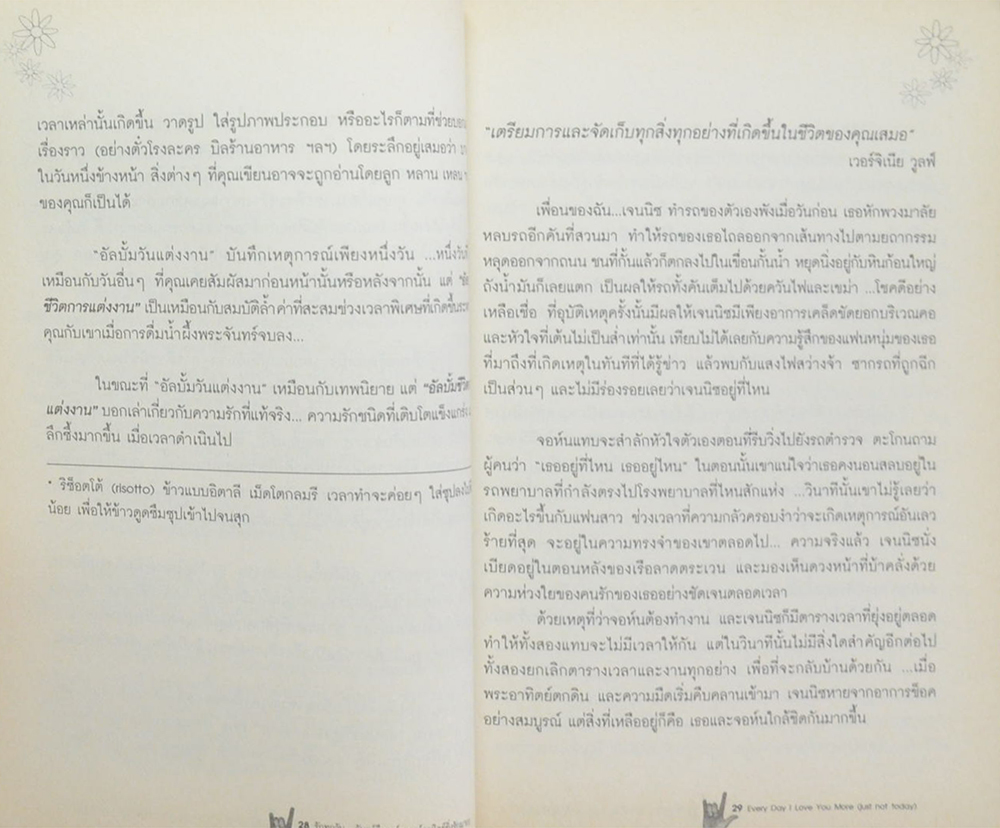 เวลาเหล่านั้นเกิดขึ้น วาดรูป ใส่รูปภาพประกอบ หรืออะไรก็ตามที่ช่วย
เรื่องราว (อย่างตั๋วโรงละคร บิลร้านอาหาร ฯลฯ) โดยระลึกอยู่เสมอว่า
ในวันหนึ่งข้างหน้า สิ่งต่างๆ ที่คุณเขียนอาจจะถูกอ่านโดยลูก หลาน เหลน
ของคุณก็เป็นได้
"อัลบั้มวันแต่งงาน" บันทึกเหตุการณ์เพียงหนึ่งวัน ...หนึ่งวันที่
เหมือนกับวันอื่นๆ ที่คุณเคยสัมผัสมาก่อนหน้านั้นหรือหลังจากนั้น แต่
ชีวิตการแต่งงาน" เป็นเหมือนกับสมบัติล้ำค่าที่สะสมช่วงเวลาพิเศษที่เกิดขึ้น
คุณกับเขาเมื่อการดื่มน้ำผึ้งพระจันทร์จบลง...
ในขณะที่ "อัลบั้มวันแต่งงาน" เหมือนกับเทพนิยาย แต่ "อัลบั้มชีวิต
แต่งงาน" บอกเล่าเกี่ยวกับความรักที่แท้จริง... ความรักชนิดที่เติบโตแข็งแกร่ง
ลึกซึ้งมากขึ้น เมื่อเวลาดำเนินไป
* ริซ็อตโต้ (risotto) ข้าวแบบอิตาลี เม็ดโตกลมรี เวลาทำจะค่อยๆ ใส่ซุปลงไป
น้อย เพื่อให้ข้าวดูดซึมซุปเข้าไปจนสุก
28
"เตรียมการและจัดเก็บทุกสิ่งทุกอย่างที่เกิดขึ้นในชีวิตของคุณเสมอ"
เวอร์จิเนีย วูลฟ์
เพื่อนของฉัน...เจนนิซ ทำรถของตัวเองพังเมื่อวันก่อน เธอหักพวงมาลัย
หลบรถอีกคันที่สวนมา ทำให้รถของเธอไถลออกจากเส้นทางไปตามยถากรรม
หลุดออกจากถนน ชนที่กั้นแล้วก็ตกลงไปในเขื่อนกั้นน้ำ หยุดนิ่งอยู่กับหินก้อนใหญ่
ถังน้ำมันก็เลยแตก เป็นผลให้รถทั้งคันเต็มไปด้วยควันไฟและเขม่า ...โชคดีอย่าง
เหลือเชื่อ ที่อุบัติเหตุครั้งนั้นมีผลให้เจนนิซมีเพียงอาการเคล็ดขัดยอกบริเวณคอ
และหัวใจที่เต้นไม่เป็นส่ำเท่านั้น เทียบไม่ได้เลยกับความรู้สึกของแฟนหนุ่มของเธอ
ที่มาถึงที่เกิดเหตุในทันทีที่ได้รู้ข่าว แล้วพบกับแสงไฟสว่างจ้า ซากรถที่ถูกฉีก
เป็นส่วนๆ และไม่มีร่องรอยเลยว่าเจนนิซอยู่ที่ไหน
จอห์นแทบจะสำลักหัวใจตัวเองตอนที่รีบวิ่งไปยังรถตำรวจ ตะโกนถาม
ผู้คนว่า "เธออยู่ที่ไหน เธออยู่ไหน" ในตอนนั้นเขาแน่ใจว่าเธอคงนอนสลบอยู่ใน
รถพยาบาลที่กำลังตรงไปโรงพยาบาลที่ไหนสักแห่ง ...วินาทีนั้นเขาไม่รู้เลยว่า
เกิดอะไรขึ้นกับแฟนสาว ช่วงเวลาที่ความกลัวครอบงำว่าจะเกิดเหตุการณ์อันเลว
ร้ายที่สุด จะอยู่ในความทรงจำของเขาตลอดไป... ความจริงแล้ว เจนนิซนั่ง
เบียดอยู่ในตอนหลังของเรือลาดตระเวน และมองเห็นดวงหน้าที่บ้าคลั่งด้วย
ความห่วงใยของคนรักของเธออย่างชัดเจนตลอดเวลา
ด้วยเหตุที่ว่าจอห์นต้องทำงาน และเจนนิซก็มีตารางเวลาที่ยุ่งอยู่ตลอด
ทำให้ทั้งสองแทบจะไม่มีเวลาให้กัน แต่ในวินาทีนั้นไม่มีสิ่งใดสำคัญอีกต่อไป
ทั้งสองยกเลิกตารางเวลาและงานทุกอย่าง เพื่อที่จะกลับบ้านด้วยกัน ...เมื่อ
พระอาทิตย์ตกดิน และความมืดเริ่มคืบคลานเข้ามา เจนนิซหายจากอาการช็อค
อย่างสมบูรณ์ แต่สิ่งที่เหลืออยู่ก็คือ เธอและจอห์นใกล้ชิดกันมากขึ้น
29 Every Day I Love You More (just not today)